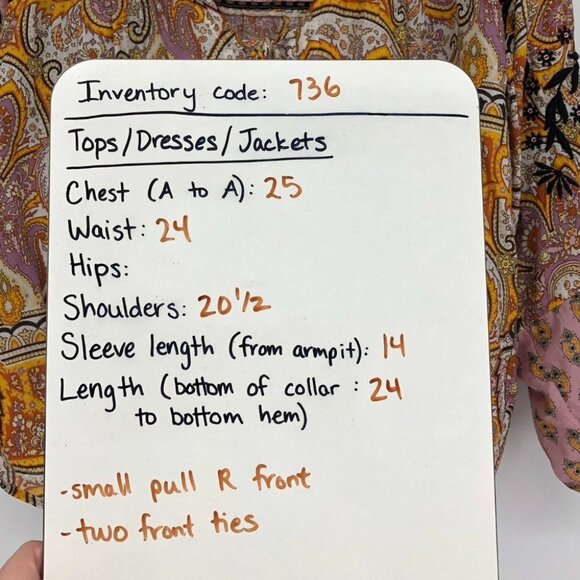 Inventory code: 736
Tops/Dresses/Jackets
Chest (A to A): 25
Waist: 24
Hips:
Shoulders: 20 1/2
Sleeve length (from armpit): 14
Length (bottom of collar : 24
to bottom hem)
-small pull R front
-two front ties